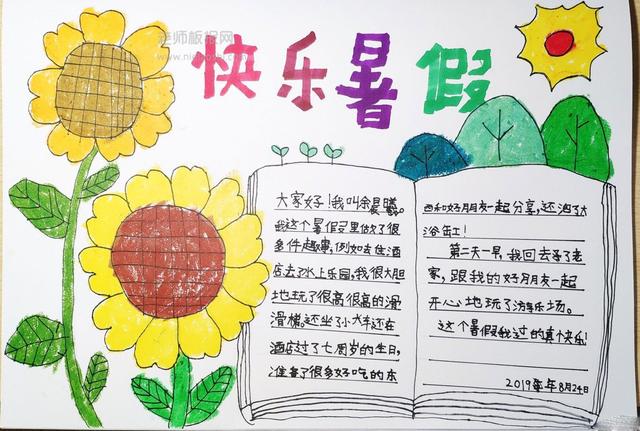 快乐暑假
大家好！我叫余晨曦。
我这个暑假里做了很
多件趣事，例如去住酒
店去水上乐园，我很大胆
地玩了很高很高的滑
滑梯。还坐了小火车还在
酒店过了七周岁的生日，
准备了很多好吃的东
西和好朋友一起分享，还泡了大
浴缸！
第二天一早，我回去了老
家，跟我的好朋友一起
开心地玩了游乐场。
这个暑假我过的真个快乐！
2019年8月24日